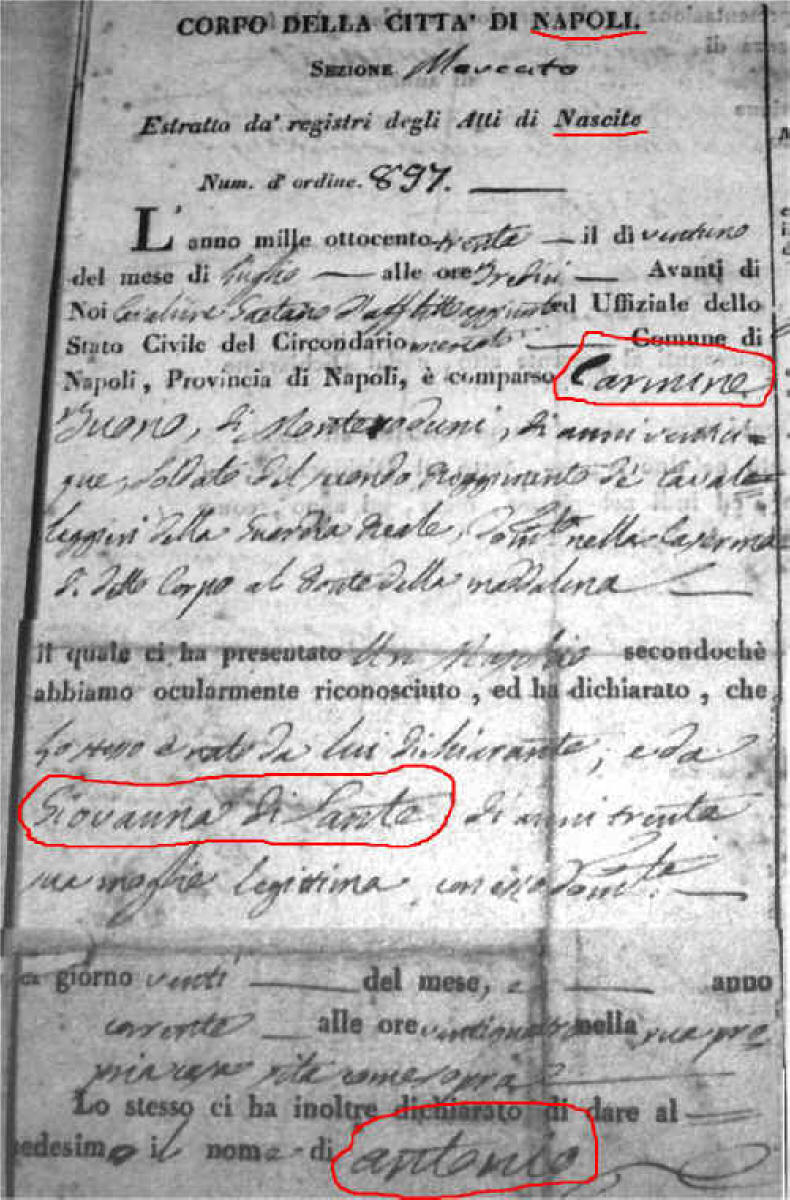 CORPO DELLA CITTA' DI NAPOLI.
SEZIONE Mercato
Estratto da' registri degli Atti di Nascite
Num. d' ordine. 897.
L' anno mille ottocento trenta il di ventuno
del mese di luglio alle ore tredici Avanti di
Noi Cavaliere Gaetano d'afflitto aggiunto ed Uffiziale dello
Stato Civile del Circondario mercato Comune di
Napoli, Provincia di Napoli, è comparso Carmine
Buorio, di Monteroduni, di anni venticin=
que, Soldato del secondo Reggimento di Caval=
leggieri della Guardia Reale, domto nella Caserma
di detto Corpo al Ponte della maddalena
il quale ci ha presentato Un Maschio secondochè
abbiamo ocularmente riconosciuto, ed ha dichiarato, che
lo stesso è nato da lui dichiarante, e da
Giovanna di Sante di anni trenta
sua moglie legittima con esso domta.
giorno venti del mese, e anno
corrente alle ore nella sua pro
pria casa sita come sopra
Lo stesso ci ha inoltre dichiarato di dare al
medesimo il nome di antonio